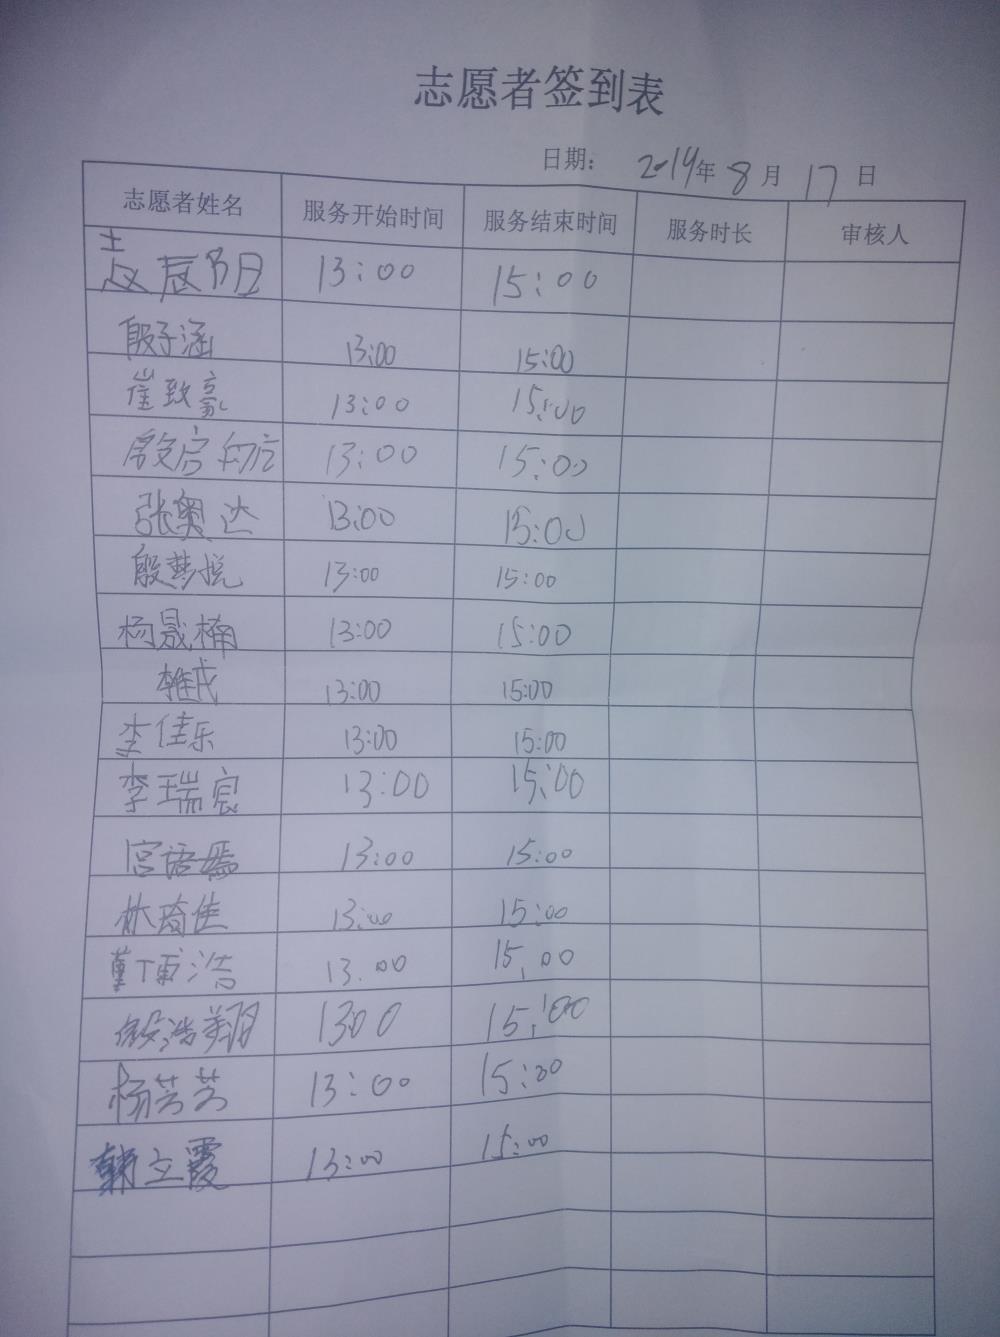 志愿者签到表
日期: 2014年8月17日
志愿者姓名 服务开始时间 服务结束时间 服务时长 审核人
13:00 15:00
段子涵 13:00 15:00
崔致豪 13:00 15:00
13:00 15:00
张奥达 13:00 15:00
殷梦悦 13:00 15:00
杨晟楠 13:00 15:00
13:00 15:00
李佳乐 13:00 15:00
李瑞宸 13:00 15:00
宫语嫣 13:00 15:00
林琦佳 13:00 15:00
13.00 15.00
浩翔 1300 15:00
杨芸芸 13:00 15:00
韩立霞 13:00 15:00